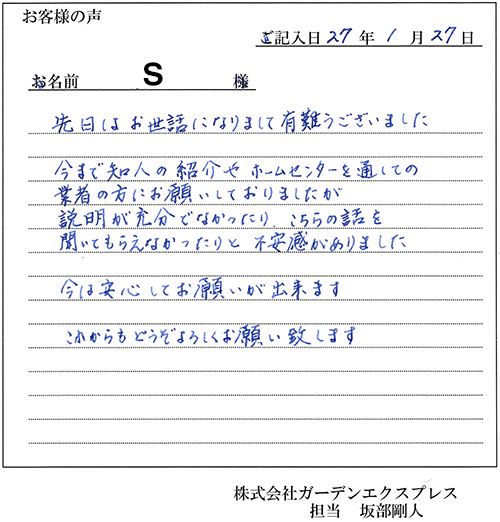 お客様の声
ご記入日 27 年 1 月 27 日
お名前 S 様
先日はお世話になりまして有難うございました
今まで知人の紹介や ホームセンターを通しての
業者の方にお願いしておりましたが
説明が充分でなかったり、こちらの話を
聞いてもらえなかったりと 不安感がありました
今は安心してお願いが出来ます
これからもどうぞよろしくお願い致します
株式会社ガーデンエクスプレス
担当 坂部剛人